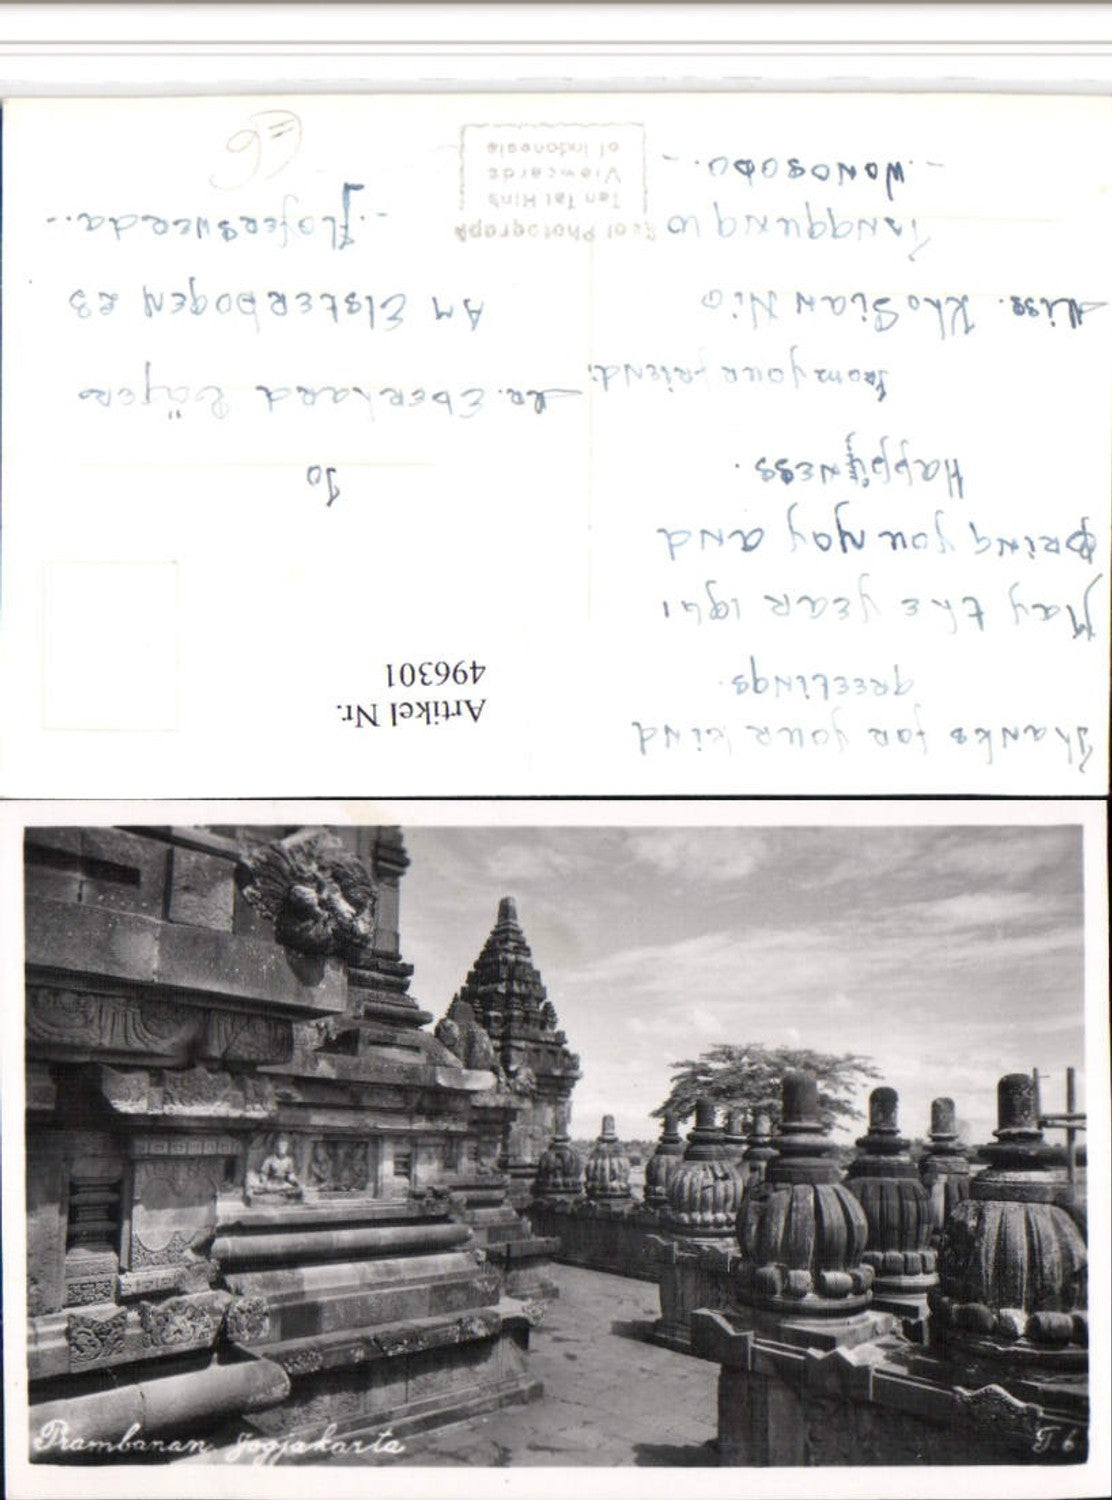 Thanks for your kind
greetings.
May the year 1961
bring you yoy and
Happiness.
from your friend:
Miss. Kho Sian Nio
Tanggung 10
-. Wonosobo. -
Real Photograph
Tan Tat Hin's
Viewcards
of Indonesia
Artikel Nr.
496301
To
Mr. Eberhard
Am Elsterbogen 23
-. Hoyerswerda. -
=6
Prambanan, Jogjakarta
T. 6